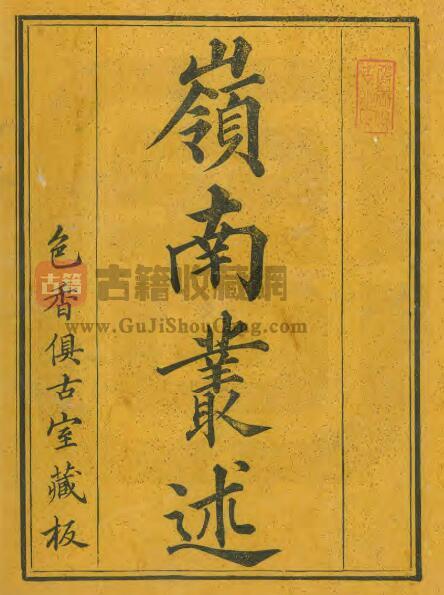 嶺南叢述
色香俱古室藏板
古籍
古籍收藏網
www.GuJiShouCang.com